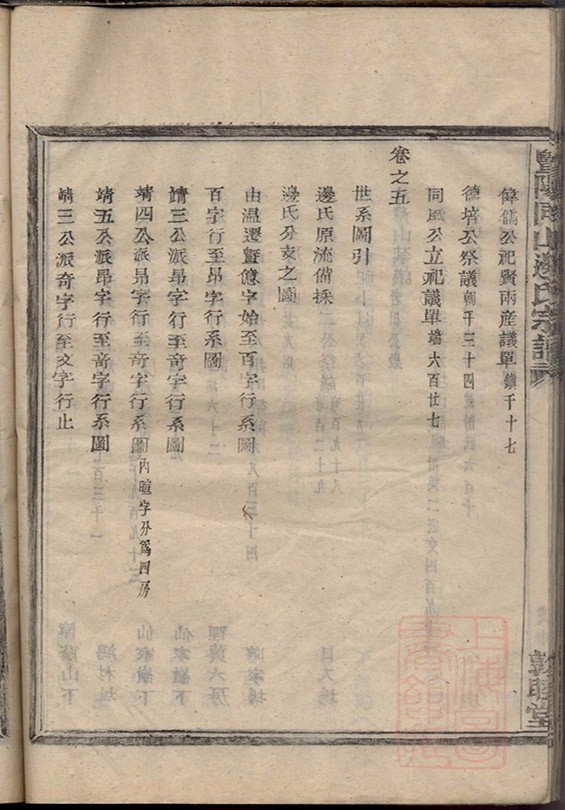 暨陽同山邊氏宗譜
偉儒公祀賢兩產議單鎮千十七
德培公祭議朝千三十四
同風公立祀議單端六百廿七
卷之五
世系圖引
邊氏原流備採
邊氏分支之圖
由溫遷暨億字始至百字行系圖
百字行至昂字行系圖
靖三公派昂字行至奇字行系圖
靖四公派昂字行至奇字行系圖內暄字分爲四房
靖五公派昂字行至奇字行系圖
靖三公派奇字行至文字行止
敦睦堂
上海圖書館藏